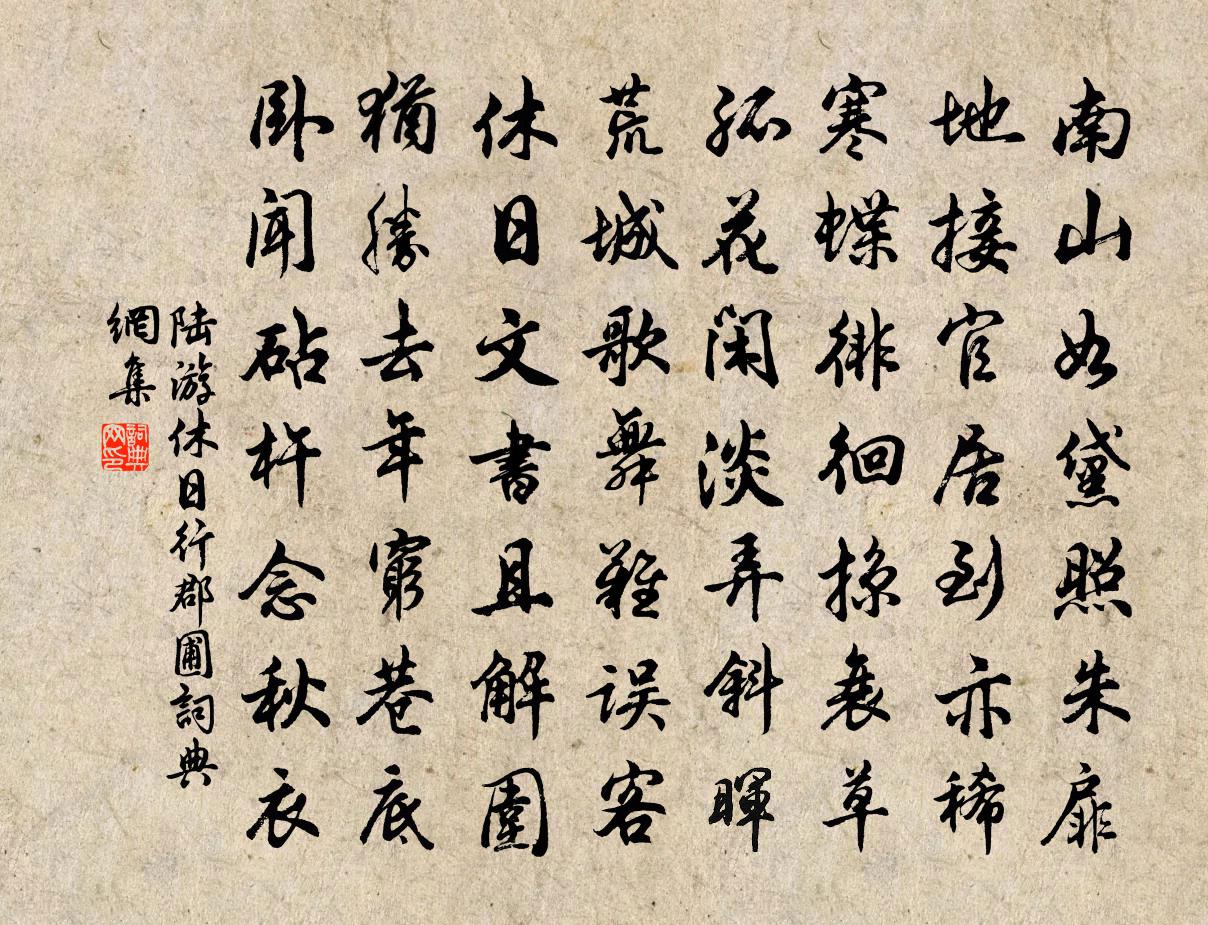 南山如黛照朱扉
地接官居到亦稀
寒蝶徘徊掠衰草
孤花闲淡弄斜暉
荒城歌舞難误客
休日文書且解圍
猶勝去年窮巷底
卧闻砧杵念秋衣
陆游休日行郡圃詞典
網集
詞典
网印